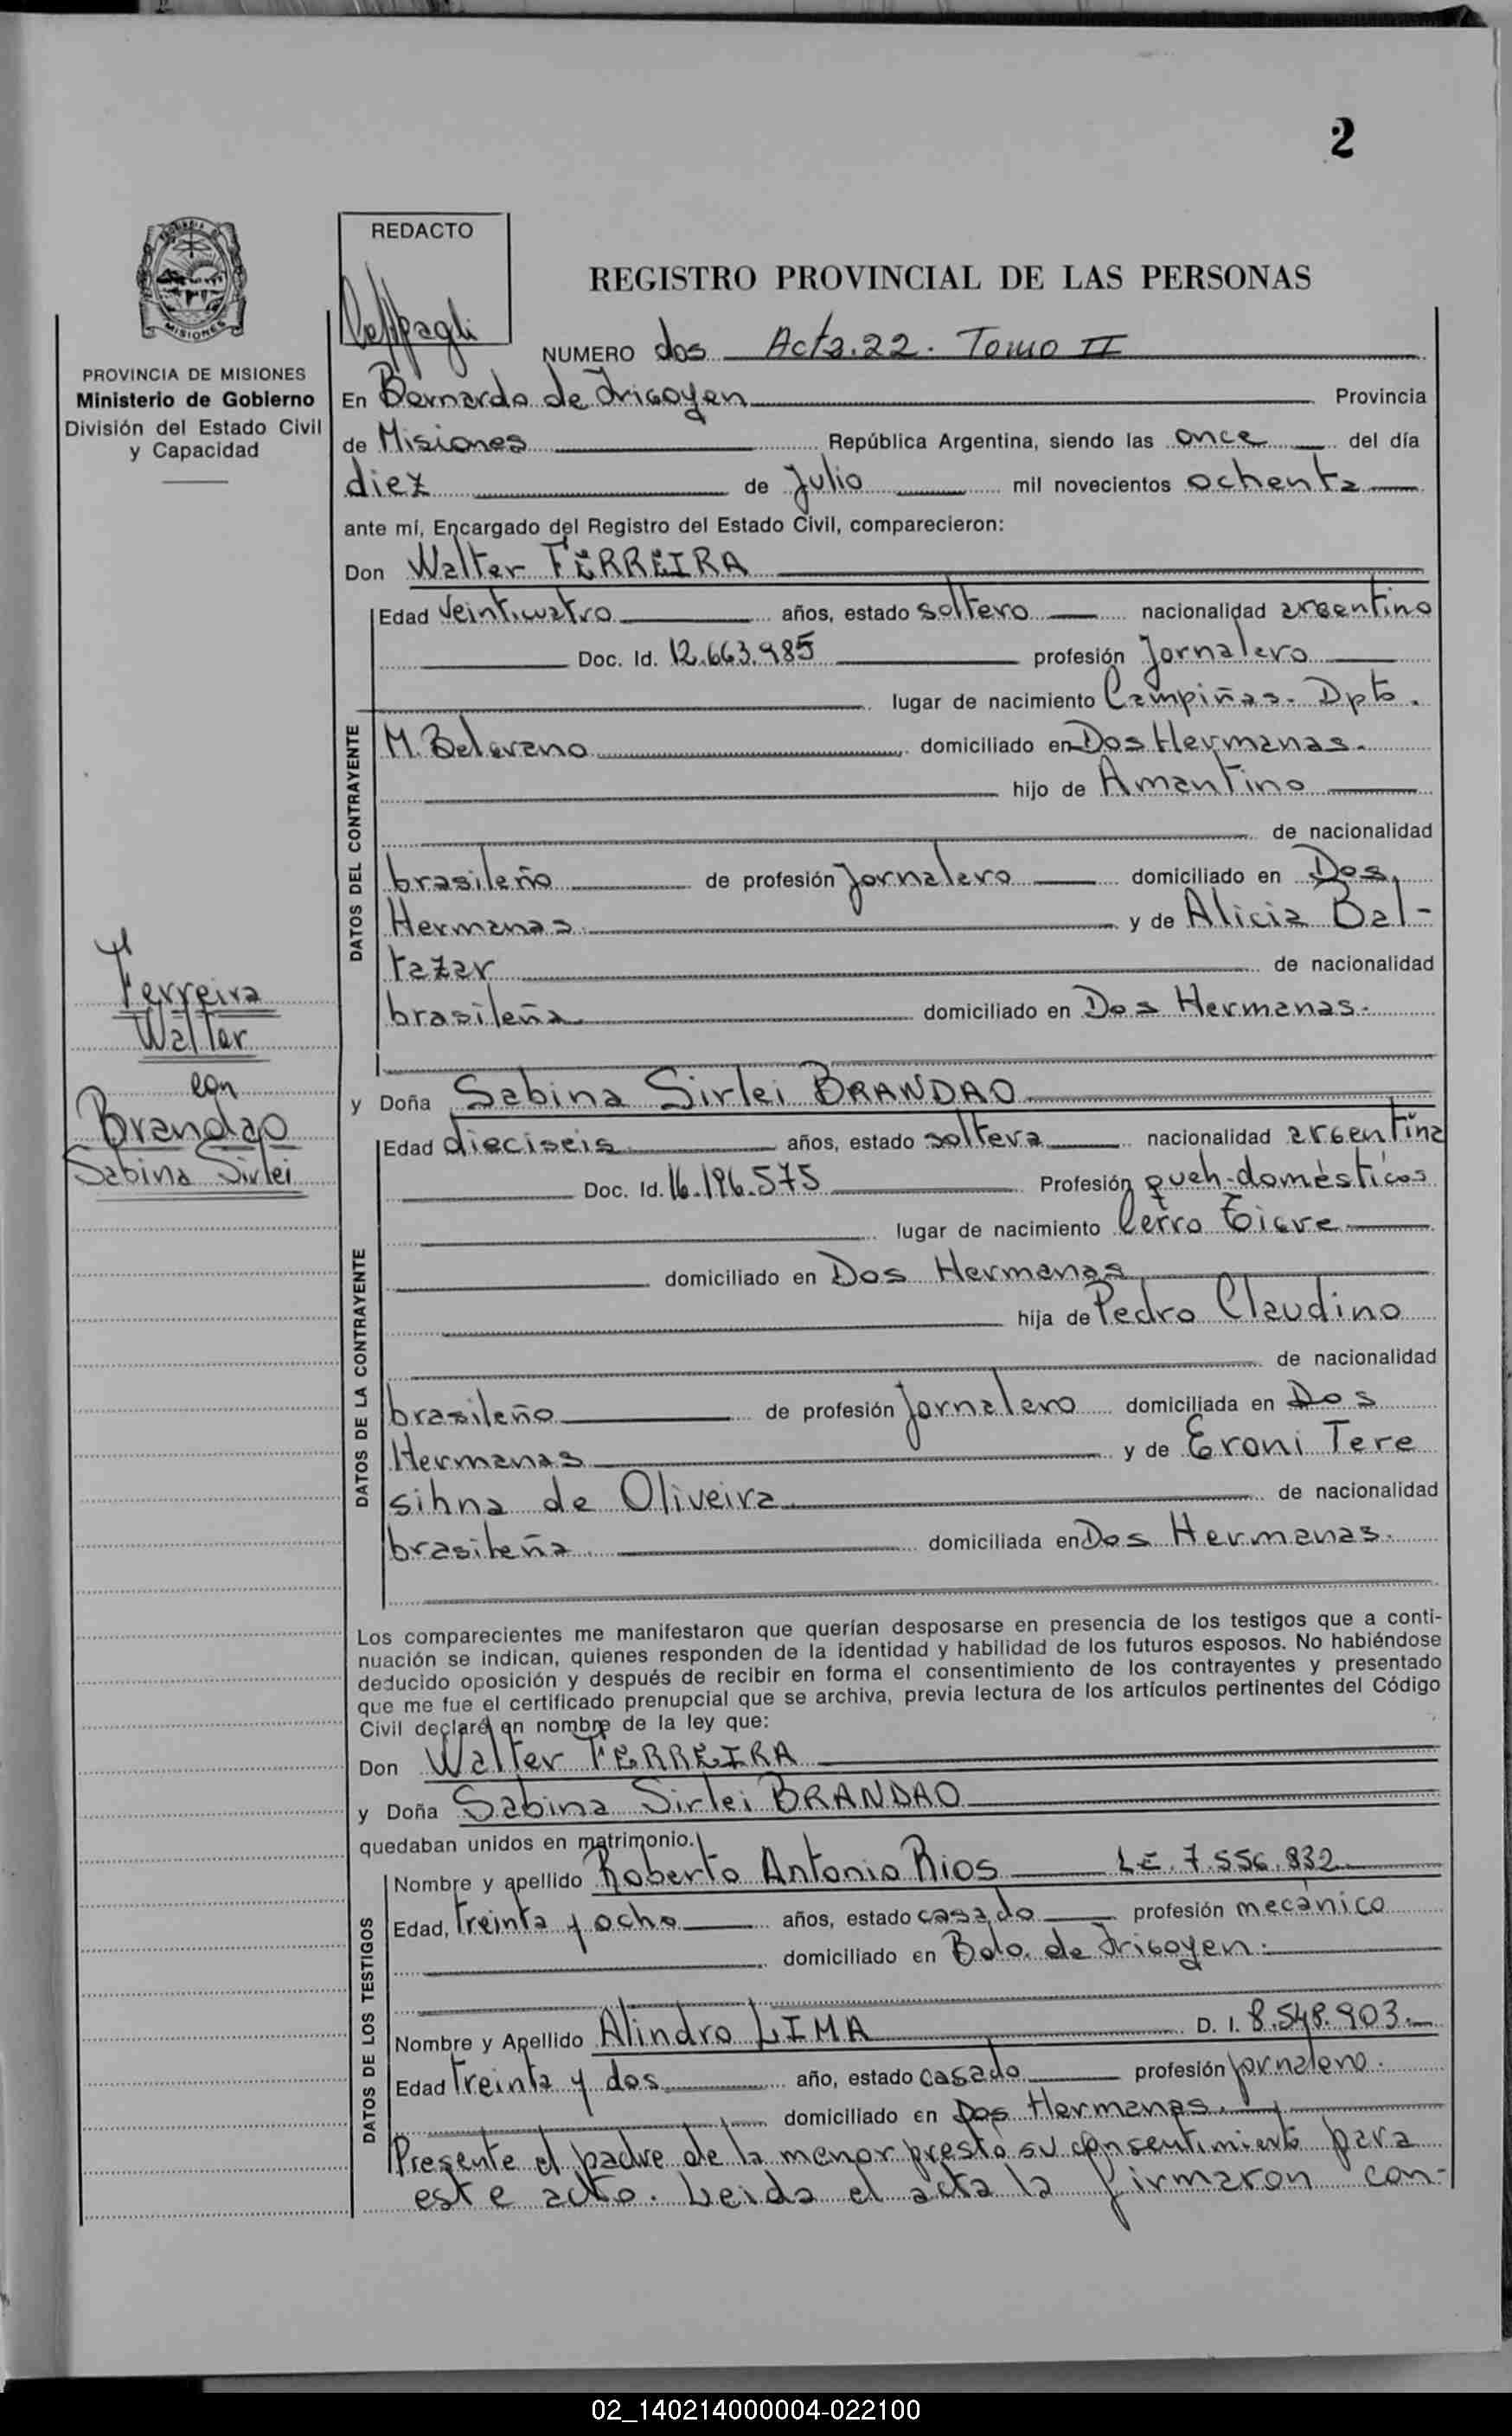 2
REDACTO
REGISTRO PROVINCIAL DE LAS PERSONAS
MISIONES
PROVINCIA DE MISIONES
Ministerio de Gobierno
División del Estado Civil
y Capacidad
NUMERO dos Acta.22. Tomo II
En Bernardo de Irigoyen Provincia
de Misiones República Argentina, siendo las once del día
diez de Julio mil novecientos ochenta
ante mí, Encargado del Registro del Estado Civil, comparecieron:
Don Walter FERREIRA
DATOS DEL CONTRAYENTE
Edad veinticuatro años, estado soltero nacionalidad argentino
Doc. Id. 12.663.985 profesión Jornalero
lugar de nacimiento Campiñas. Dpto.
M. Belgrano domiciliado en Dos Hermanas.
hijo de Amantino
de nacionalidad
brasileño de profesión Jornalero domiciliado en Dos
Hermanas y de Alicia Bal-
tazar de nacionalidad
brasileña domiciliado en Dos Hermanas.
Ferreira
Walter
con
Brandao
Sabina Sirlei
y Doña Sabina Sirlei BRANDAO
DATOS DE LA CONTRAYENTE
Edad dieciseis años, estado soltera nacionalidad argentina
Doc. Id. 16.196.575 Profesión queh-domésticos
lugar de nacimiento Cerro Tigre
domiciliado en Dos Hermanas
hija de Pedro Claudino
de nacionalidad
brasileño de profesión Jornalero domiciliada en Dos
Hermanas y de Eroni Tere
sihna de Oliveira de nacionalidad
brasileña domiciliada en Dos Hermanas.
Los comparecientes me manifestaron que querían desposarse en presencia de los testigos que a conti-
nuación se indican, quienes responden de la identidad y habilidad de los futuros esposos. No habiéndose
deducido oposición y después de recibir en forma el consentimiento de los contrayentes y presentado
que me fue el certificado prenupcial que se archiva, previa lectura de los artículos pertinentes del Código
Civil declaré en nombre de la ley que:
Don Walter FERREIRA
y Doña Sabina Sirlei BRANDAO
quedaban unidos en matrimonio.
DATOS DE LOS TESTIGOS
Nombre y apellido Roberto Antonio Rios LE. 7.556.832
Edad, treinta y ocho años, estado casado profesión mecánico
domiciliado en Bdo. de Irigoyen.
Nombre y Apellido Alindro LIMA D. I. 8.548.903.
Edad treinta y dos año, estado casado profesión jornalero.
domiciliado en Dos Hermanas.
Presente el padre de la menor prestó su consentimiento para
este acto. Leida el acta la firmaron con-
02_140214000004-022100